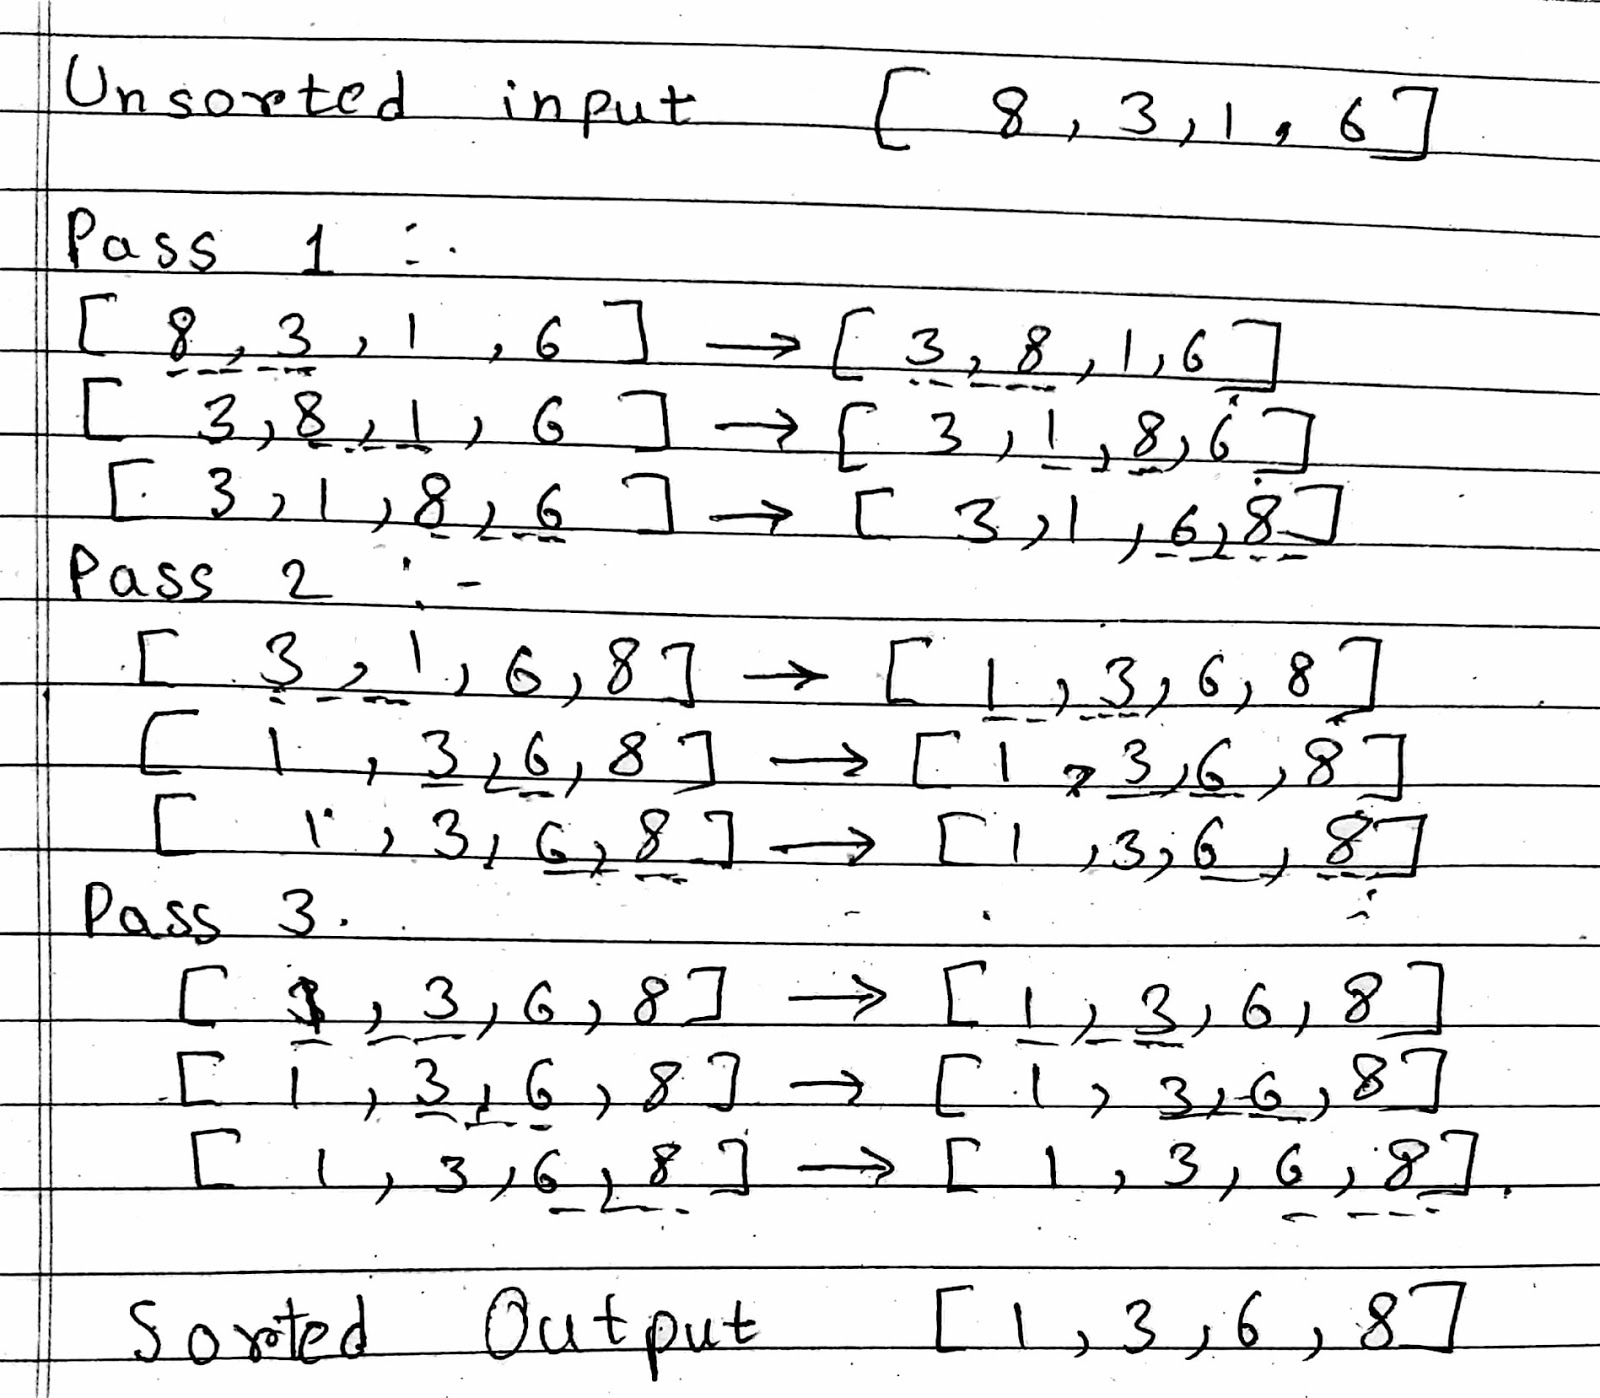 Unsorted input [ 8, 3, 1, 6]
Pass 1 :-
[ 8, 3, 1, 6 ] → [ 3, 8, 1, 6 ]
[ 3, 8, 1, 6 ] → [ 3, 1, 8, 6 ]
[ 3, 1, 8, 6 ] → [ 3, 1, 6, 8 ]
Pass 2 :-
[ 3, 1, 6, 8 ] → [ 1, 3, 6, 8 ]
[ 1, 3, 6, 8 ] → [ 1, 3, 6, 8 ]
[ 1, 3, 6, 8 ] → [ 1, 3, 6, 8 ]
Pass 3.
[ 1, 3, 6, 8 ] → [ 1, 3, 6, 8 ]
[ 1, 3, 6, 8 ] → [ 1, 3, 6, 8 ]
[ 1, 3, 6, 8 ] → [ 1, 3, 6, 8 ].
Sorted Output [ 1, 3, 6, 8 ]